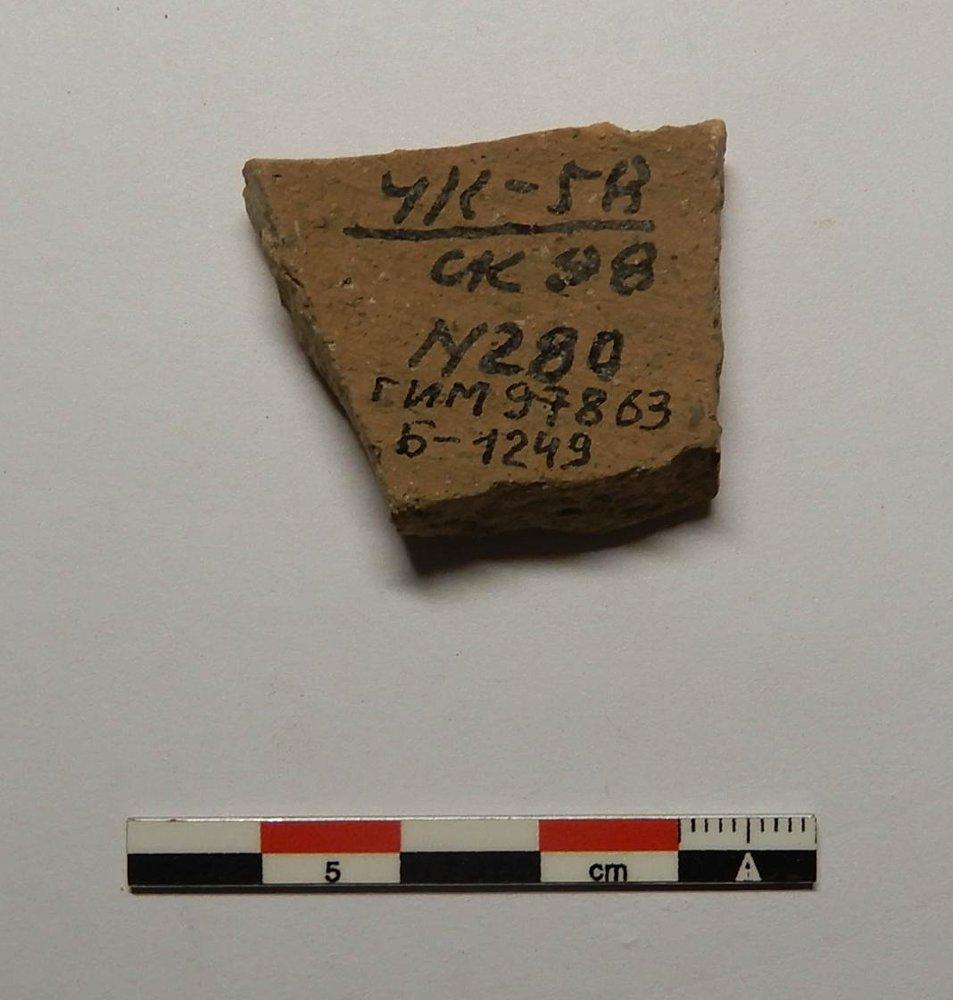 ЧК-5А
СК 98
N280
ГИМ 97863
Б-1249
5 cm